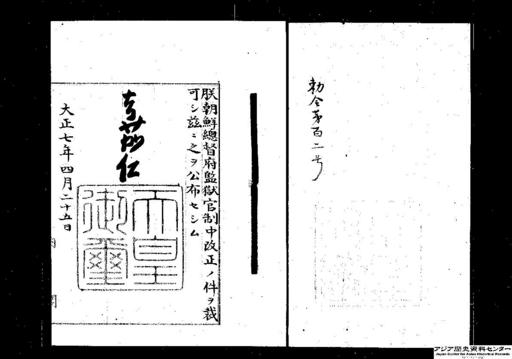 勅令第百二号
朕朝鮮總督府監獄官制中改正ノ件ヲ裁
可シ茲ニ之ヲ公布セシム
嘉仁
天皇
御璽
大正七年四月二十五日
アジア歴史資料センター
Japan Center for Asian Historical Records